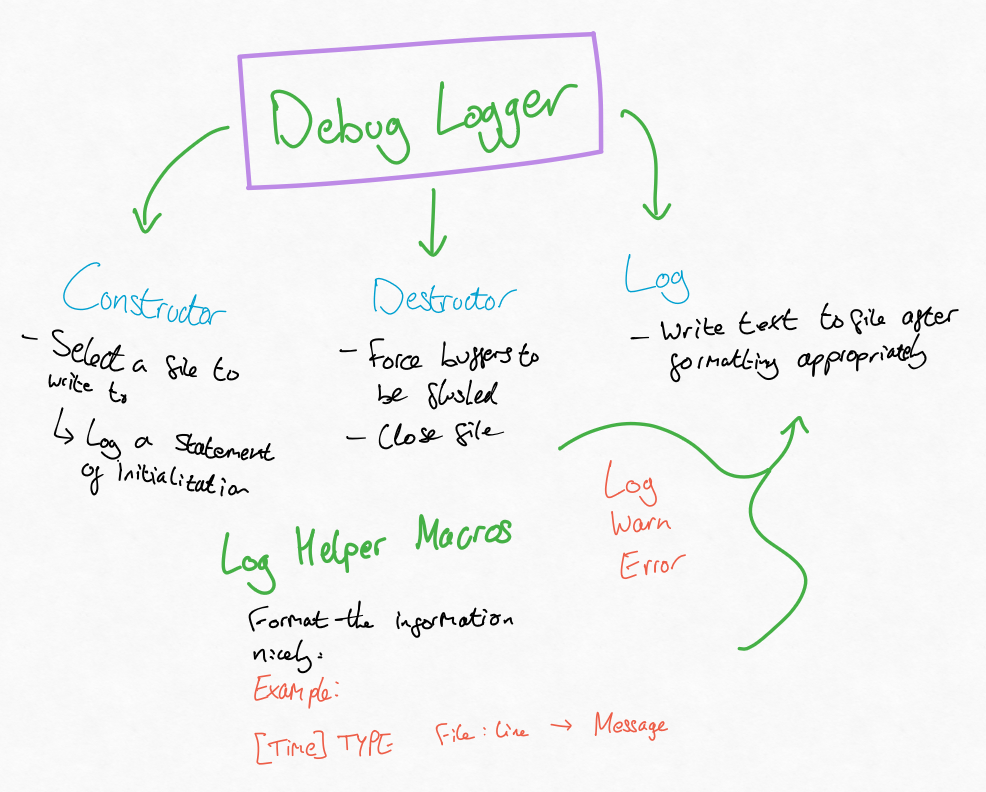 Debug Logger
Constructor
- Select a file to
write to
↳ Log a statement
of initialitation
Destructor
- Force buffers to
be flushed
- Close file
Log
- Write text to file after
formatting appropriately
Log
Warn
Error
Log Helper Macros
Format the information
nicely:
Example:
[Time] TYPE File : Line → Message